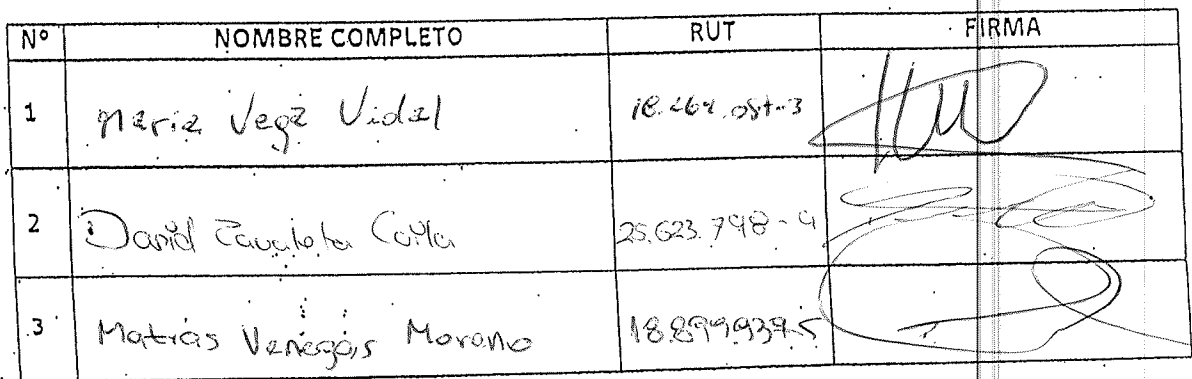 Nº NOMBRE COMPLETO RUT FIRMA
1 Maria Vega Vidal
2 David Zavaleta 25.623.798-9
3 Matías Venegas Moreno 18.899.939-5